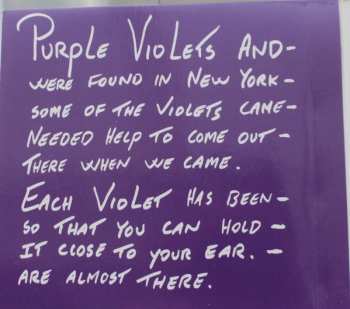 PURPLE VIOLETS AND-
WERE FOUND IN NEW YORK-
SOME OF THE VIOLETS CAME-
NEEDED HELP TO COME OUT-
THERE WHEN WE CAME.
EACH VIOLET HAS BEEN-
SO THAT YOU CAN HOLD-
IT CLOSE TO YOUR EAR.-
ARE ALMOST THERE.